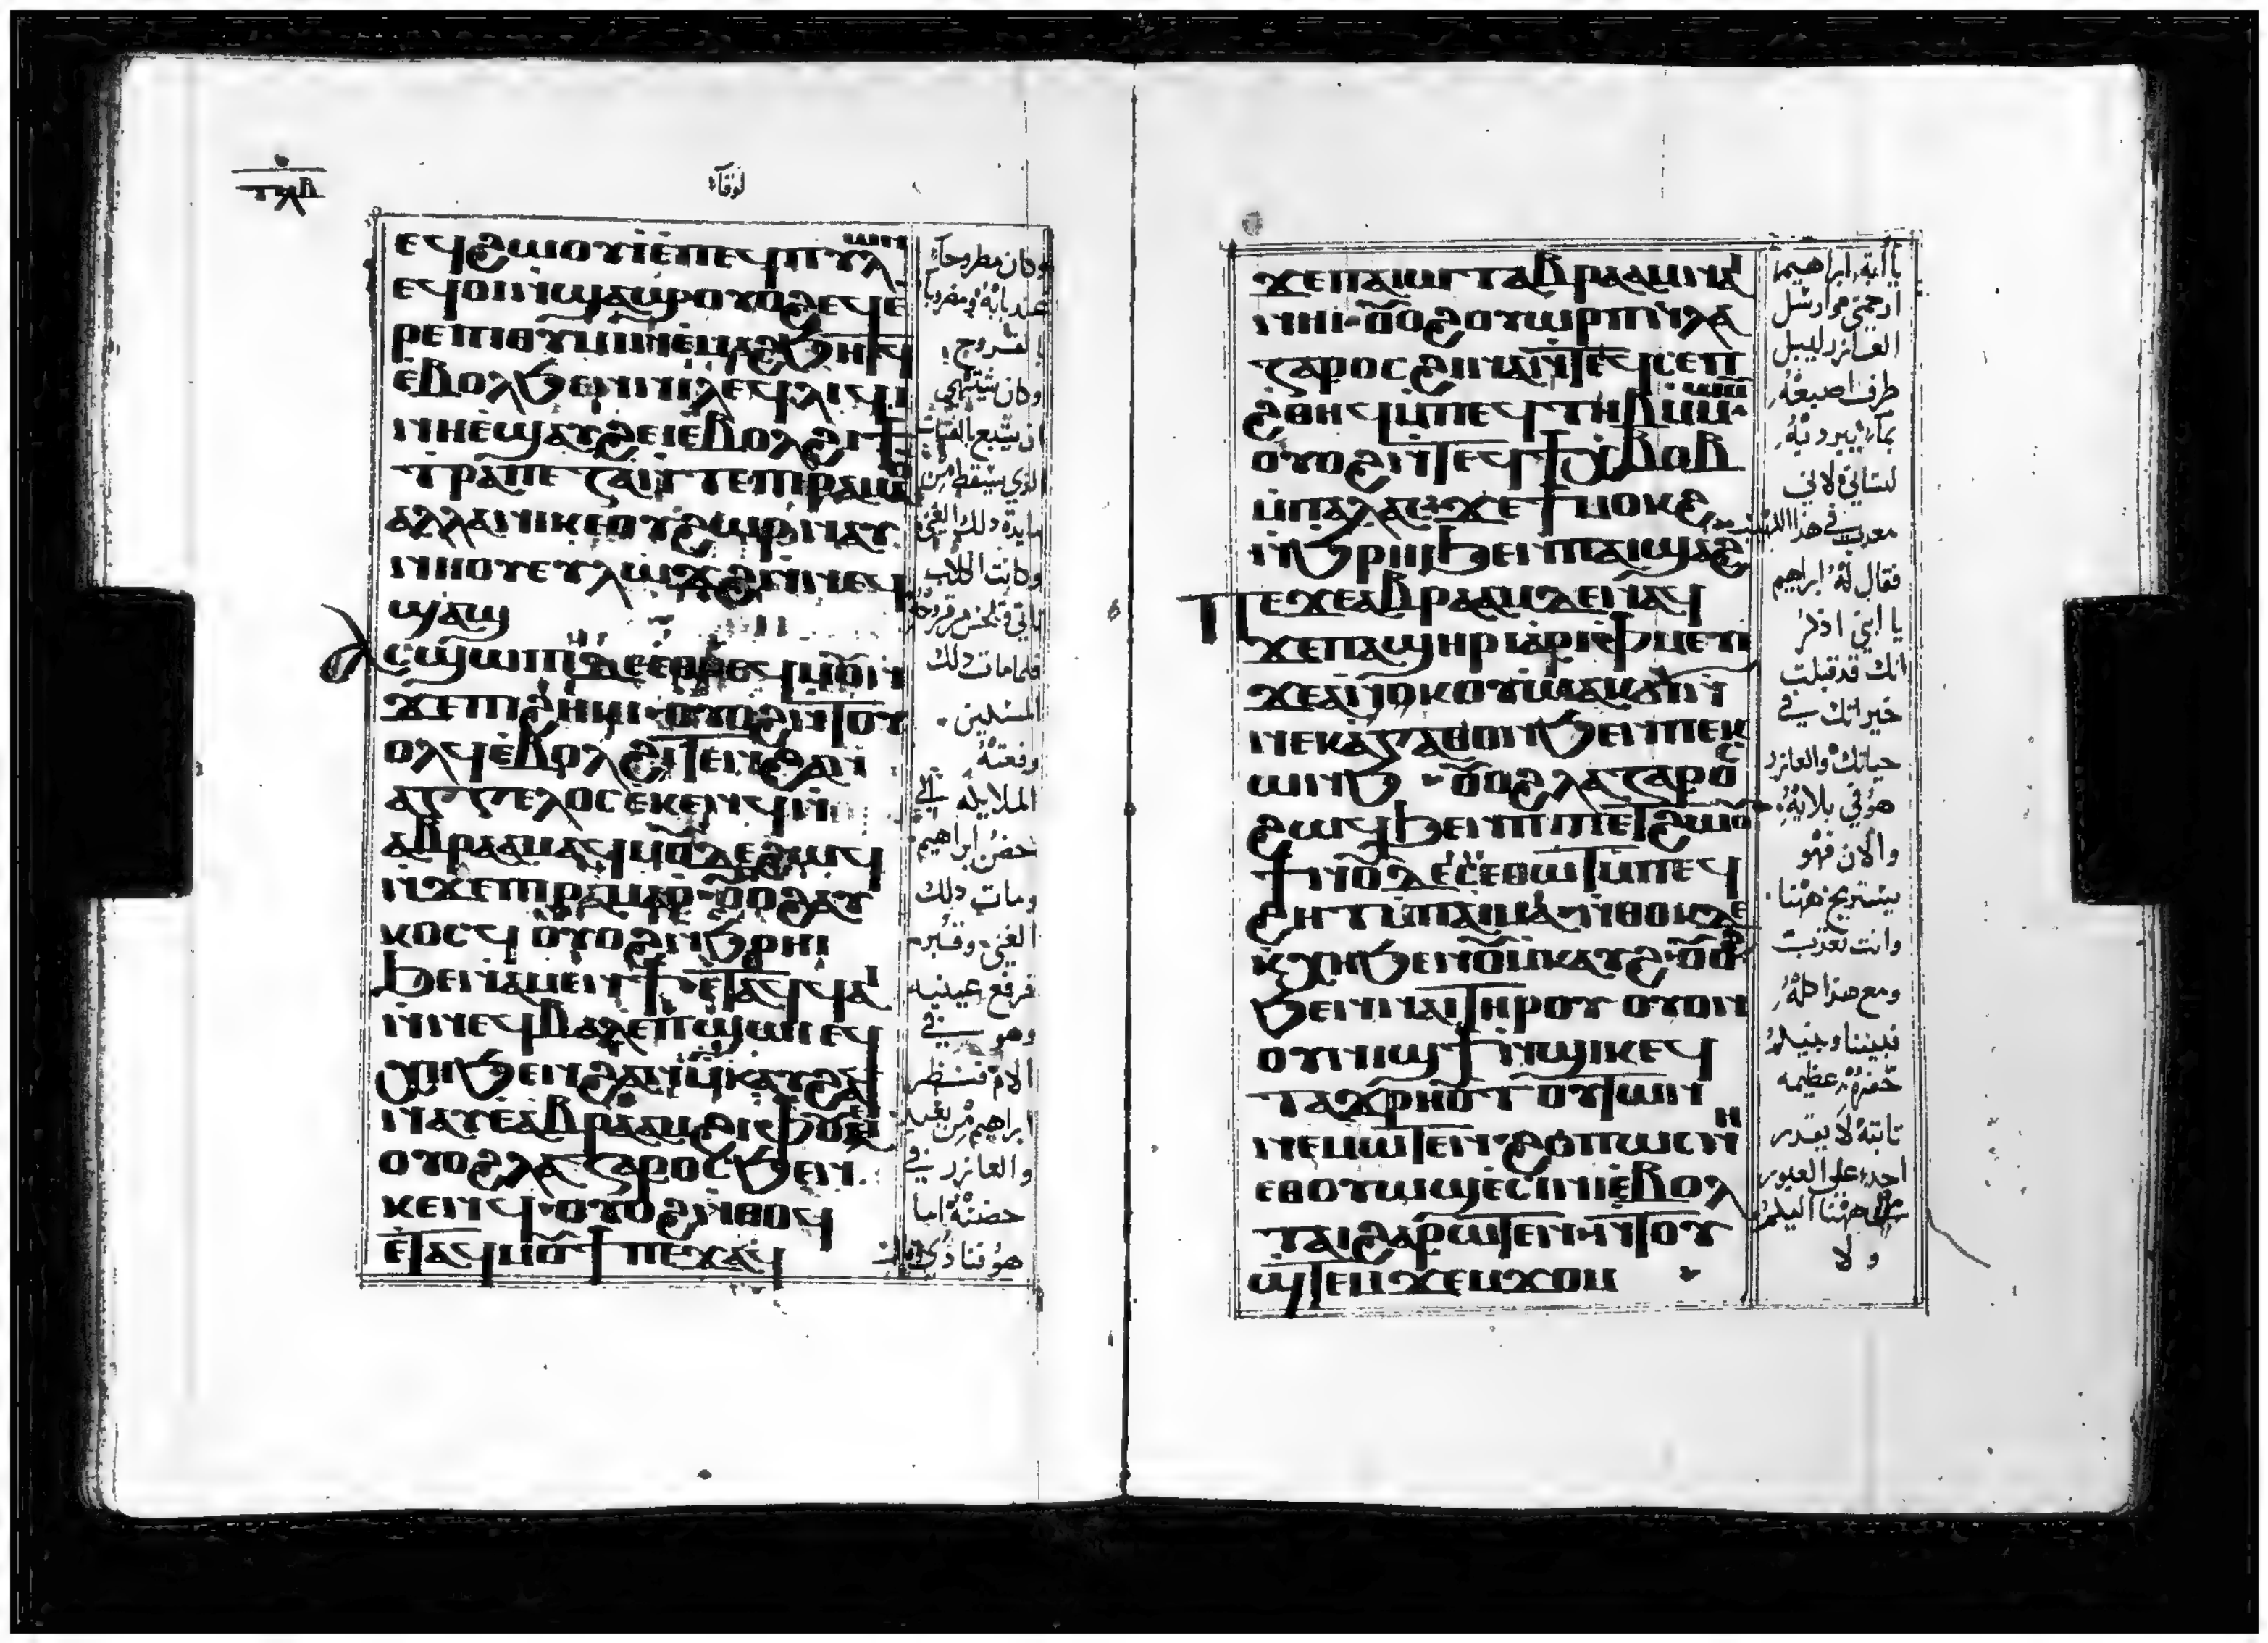 ⲧⲗⲃ
لوقا
ⲉϥϩⲱⲟⲩⲓ ⲉⲡⲉϥⲡⲩⲗⲱⲛ
ⲉϥⲟⲓ ⲛϣⲁϣ ⲟⲩⲟϩ ⲉϥⲉ
ⲣⲉⲡⲓⲑⲩⲙⲓⲛ ⲉⲙⲁϩ ϧⲏⲧϥ
ⲉⲃⲟⲗϧⲉⲛ ⲛⲓⲗⲉϥⲗⲓϥⲓ
ⲛⲏⲉϣⲁⲩϩⲉⲓ ⲉⲃⲟⲗϩⲓ ϯ
ⲧⲣⲁⲡⲉⲍⲁ ⲛⲧⲉ ⲡⲓⲣⲁⲙⲁⲟ
ⲁⲗⲗⲁ ⲛⲓⲕⲉⲟⲩϩⲱⲣ ⲛⲁⲩ
ⲛⲏⲟⲩ ⲉⲩⲗⲱϫϩ ⲛⲛⲉϥ
ϣⲁϣ
ⲁⲥϣⲱⲡⲓ ⲇⲉ ⲉⲑⲣⲉϥⲙⲟⲩ ⲛ
ϫⲉ ⲡⲓϩⲏⲕⲓ ⲟⲩⲟϩ ⲛⲧⲟⲩ
ⲟⲗϥ ⲉⲃⲟⲗϩⲓⲧⲉⲛ ϩⲁⲛ
ⲁⲅⲅⲉⲗⲟⲥ ⲉⲕⲉⲛϥ ⲛ
ⲁⲃⲣⲁⲁⲙ ⲁϥⲙⲟⲩ ⲇⲉ ϩⲱϥ
ⲛϫⲉ ⲡⲓⲣⲁⲙⲁⲟ ⲟⲩⲟϩ ⲁⲩ
ⲕⲟⲥϥ ⲟⲩⲟϩ ⲛϧⲣⲏⲓ
ϧⲉⲛ ⲁⲙⲉⲛϯ ⲉⲧⲁϥϥⲁⲓ
ⲛⲛⲉϥⲃⲁⲗ ⲉⲡϣⲱⲓ ⲉϥ
ⲭⲏ ϧⲉⲛ ϩⲁⲛⲙⲕⲁⲩϩ ⲁϥ
ⲛⲁⲩ ⲉⲁⲃⲣⲁⲁⲙ ϩⲓ ⲫⲟⲩⲉⲓ
ⲟⲩⲟϩ ⲗⲁⲍⲁⲣⲟⲥ ϧⲉⲛ
ⲕⲉⲛϥ ⲟⲩⲟϩ ⲛⲑⲟϥ
ⲉⲧⲁϥⲙⲟⲩϯ ⲡⲉϫⲁϥ
وكان مطروحا
عند بابه ومضروبا
بالقروح
وكان يشتهي
ان يشبع بالفتات
الذي يسقط من
مايدة دلك الغني
وكانت الكلاب
تاتي تلحس قروحه
فلما مات دلك
المسكين
رفعته
الملايكه الي
حضن ابراهيم
ومات دلك
الغني وقبر
فرفع عينيه
وهو في
الام فنظر
ابراهيم من بعيد
والعازر في
حضنه اما
هو فنادي
ϫⲉ ⲡⲁⲓⲱⲧ ⲁⲃⲣⲁⲁⲙ ⲛⲁⲓ
ⲛⲏⲓ ⲟⲩⲟϩ ⲟⲩⲱⲣⲡ ⲛⲗⲁ
ⲍⲁⲣⲟⲥ ϩⲓⲛⲁ ⲛⲧⲉϥⲥⲉⲡ
ϩⲑⲏϥ ⲙⲡⲉϥⲧⲏⲃ ⲙⲙⲱⲟⲩ
ⲟⲩⲟϩ ⲛⲧⲉϥϯⲭⲃⲟⲃ
ⲙⲡⲁⲗⲁⲥ ϫⲉ ϯⲙⲟⲕϩ
ⲛϧⲣⲏⲓ ϧⲉⲛ ⲡⲁⲓϣⲁϩ
ⲡⲉϫⲉ ⲁⲃⲣⲁⲁⲙ ⲇⲉ ⲛⲁϥ
ϫⲉ ⲡⲁϣⲏⲣⲓ ⲁⲣⲓⲫⲙⲉⲩⲓ
ϫⲉ ⲁⲛⲟⲕ ⲟⲩⲱ ⲁⲕϭⲓ ⲛ
ⲛⲉⲕⲁⲅⲁⲑⲟⲛ ϧⲉⲛ ⲡⲉⲕ
ⲱⲛϧ ⲟⲩⲟϩ ⲗⲁⲍⲁⲣⲟⲥ
ϩⲱϥ ϧⲉⲛ ⲡⲓⲡⲉⲧϩⲱⲟⲩ
ϯⲛⲟⲩ ⲇⲉ ⲥⲉⲑⲱⲧ ⲙⲡⲉϥ
ϩⲏⲧ ⲙⲡⲁⲓⲙⲁ ⲛⲑⲟⲕ ⲇⲉ
ⲕⲭⲏ ϧⲉⲛ ⲟⲩⲙⲕⲁⲩϩ ⲟⲩⲟϩ
ϧⲉⲛ ⲛⲁⲓ ⲧⲏⲣⲟⲩ ⲟⲩⲟⲛ
ⲟⲩⲛⲓϣϯ ⲛϣⲓⲕ ⲉϥ
ⲧⲁϫⲣⲏⲟⲩⲧ ⲟⲩⲧⲱⲛ
ⲛⲉⲙⲱⲧⲉⲛ ϩⲟⲡⲱⲥ ⲛⲏ
ⲉⲑⲟⲩⲱϣ ⲉⲥⲓⲛⲓ ⲉⲃⲟⲗ
ⲧⲁⲓ ϩⲁⲣⲱⲧⲉⲛ ⲛⲧⲟⲩ
ϣⲧⲉⲙϫⲉⲙϫⲟⲙ
يا ابة ابراهيم
ارحمني وارسل
العازر ليبل
طرف اصبعه
بماء يبرد به
لساني لاني
معدب في هدا اللهيب
فقال له ابراهيم
يا ابني ادكر
انك قد قبلت
خيراتك في
حياتك والعازر
هو في بلايه
والان فهو
يستريح ههنا
وانت تعدب
ومع هدا كله
فبيننا وبينكم
حفره عظيمه
ثابته لا يقدر
احد على العبور
من ههنا اليكم
ولا